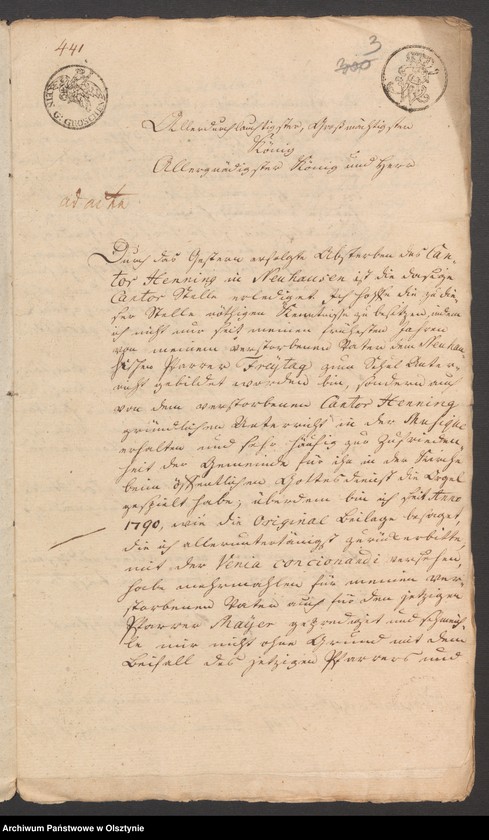 441
3
300
Allerdurchlauchtigster, Großmächtigster
König
Allergnädigster König und Herr
ad acta
Durch das Gestern erfolgte Absterben des Can-
tor Henning in Neuhausen ist die dasige
Cantor Stelle erlediget. Ich hoffe die zu die-
ser Stelle nötigen Kenntniße zu besitzen, indem
ich nicht nur seit meinen frühesten Jahren
von meinem verstorbenen Vater dem Neuhau-
sischen Pfarrer Freytag zum Schul Unter-
richt gebildet worden bin, sondern auch
von dem verstorbenen Cantor Henning
gründlichen Unterricht in der Musique
erhalten und sehr häufig zur Zufrieden-
heit der Gemeinde für ihn in der Kirche
beim öffentlichen Gottesdienst die Orgel
gespielt habe; überdem bin ich seit Anno
1790, wie die Original Beilage besaget,
die ich alleruntertänigst zurück erbitte
mit der Venia concionandi versehen,
habe mehrmahlen für meinen ver-
storbenen Vater auch für den jetzigen
Pfarrer Mayer geprediget und schmeich-
le mir nicht ohne Grund mit dem
Beifall des jetzigen Pfarrers und
Archiwum Państwowe w Olsztynie